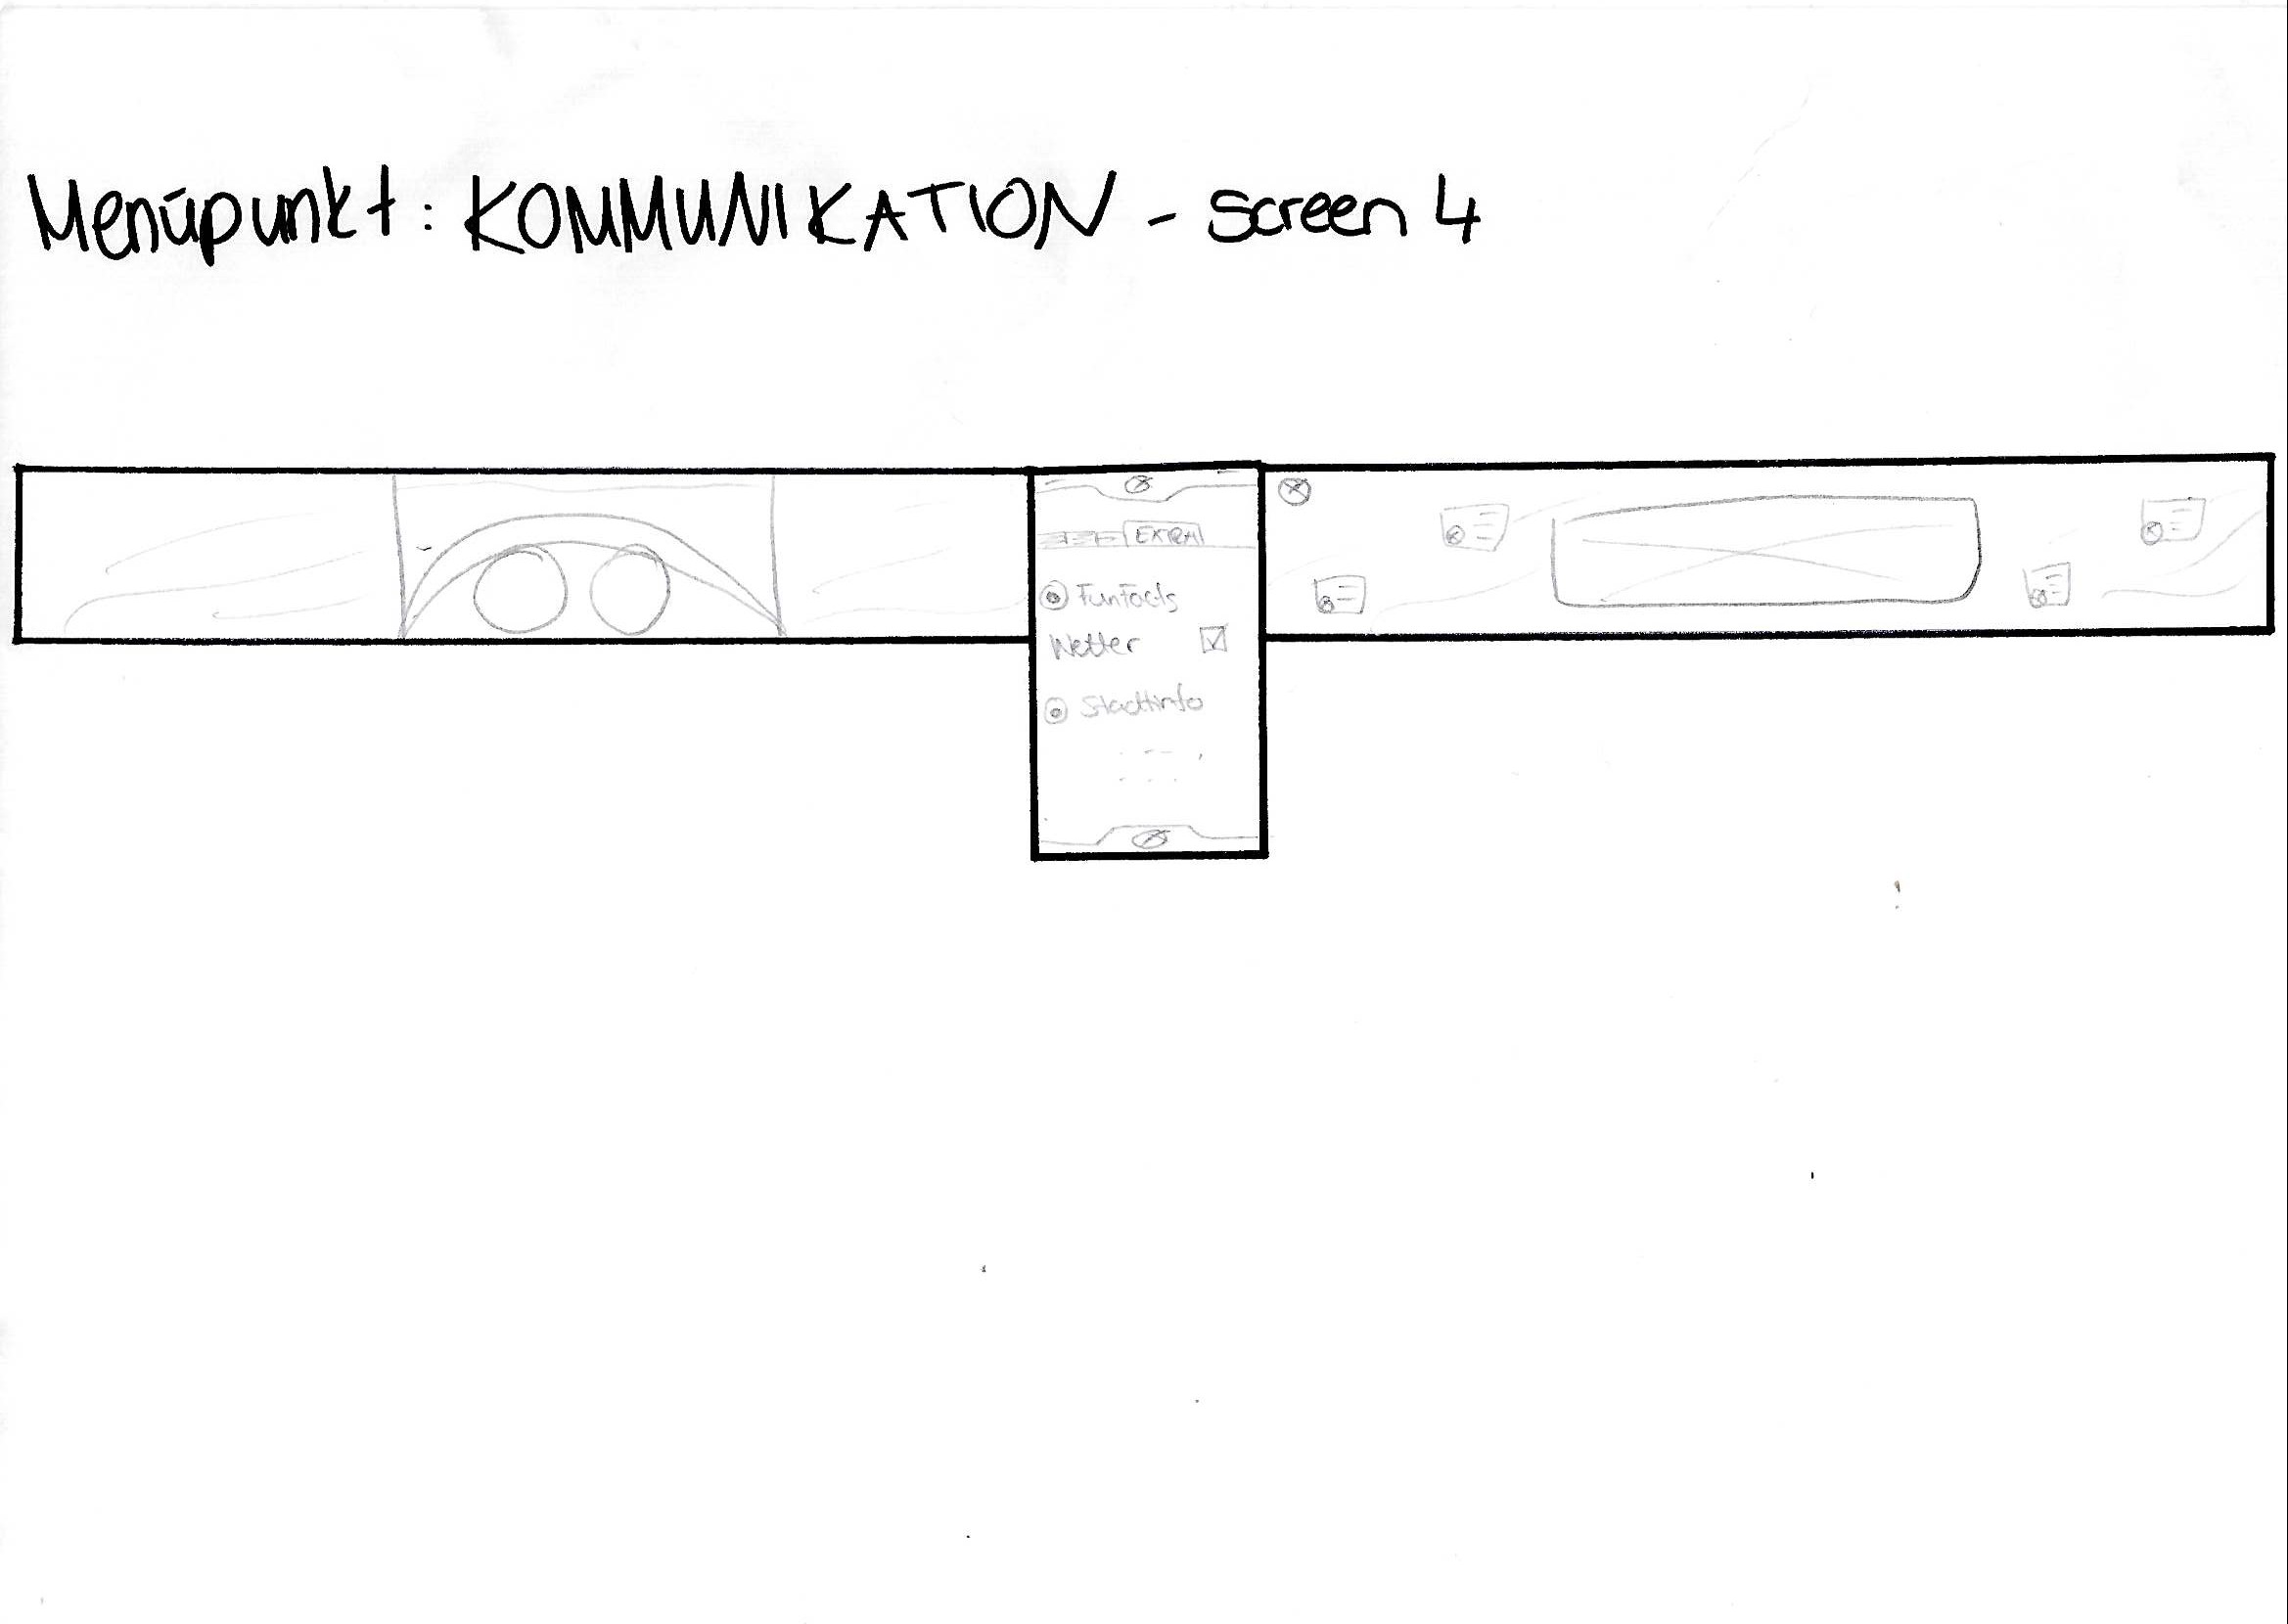 Menüpunkt: KOMMUNIKATION - screen 4
EXTRA
FunFacts
Wetter
Stadtinfo